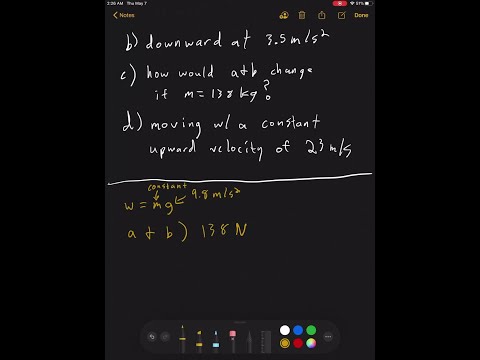 2:26 AM Thu May 7
51%
Notes
Done
b) downward at 3.5 m/s²
c) how would a+b change
if m=138 kg?
d) moving w/ a constant
upward velocity of 23 m/s
constant
w = mg 9.8 m/s²
a + b) 138 N